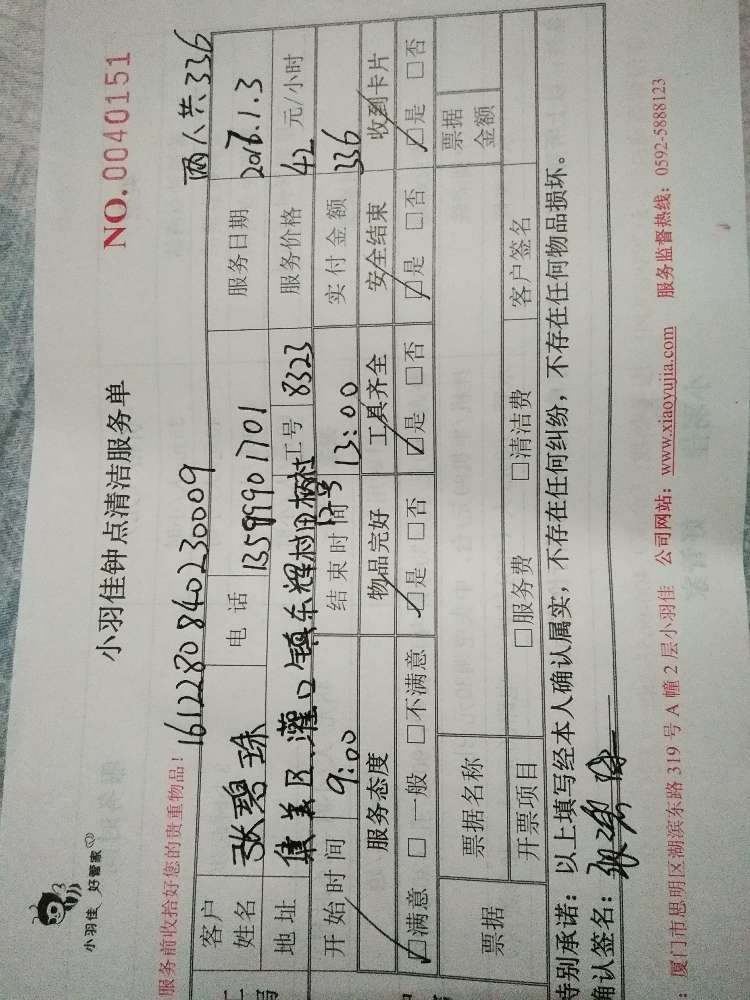 小羽佳 好管家
小羽佳钟点清洁服务单
NO.0040151
服务前收拾好您的贵重物品！
161228084020230009
两人共336
客户姓名 张碧珠 电话 13599901701 服务日期 2017.1.3
地址 集美区灌口镇东辉村田柄社12号 工号 8323 服务价格 42元/小时
开始时间 9:00 结束时间 13:00 实付金额 336
服务态度 物品完好 工具齐全 安全结束 收到卡片
□满意 □一般 □不满意 □是 □否 □是 □否 □是 □否 □是 □否
票据 票据名称 票据金额
开票项目 □服务费 □清洁费 客户签名
特别承诺：以上填写经本人确认属实，不存在任何纠纷，不存在任何物品损坏。
确认签名：
：厦门市思明区湖滨东路 319 号 A 幢 2 层小羽佳 公司网站：www.xiaoyujia.com 服务监督热线：0592-5888123